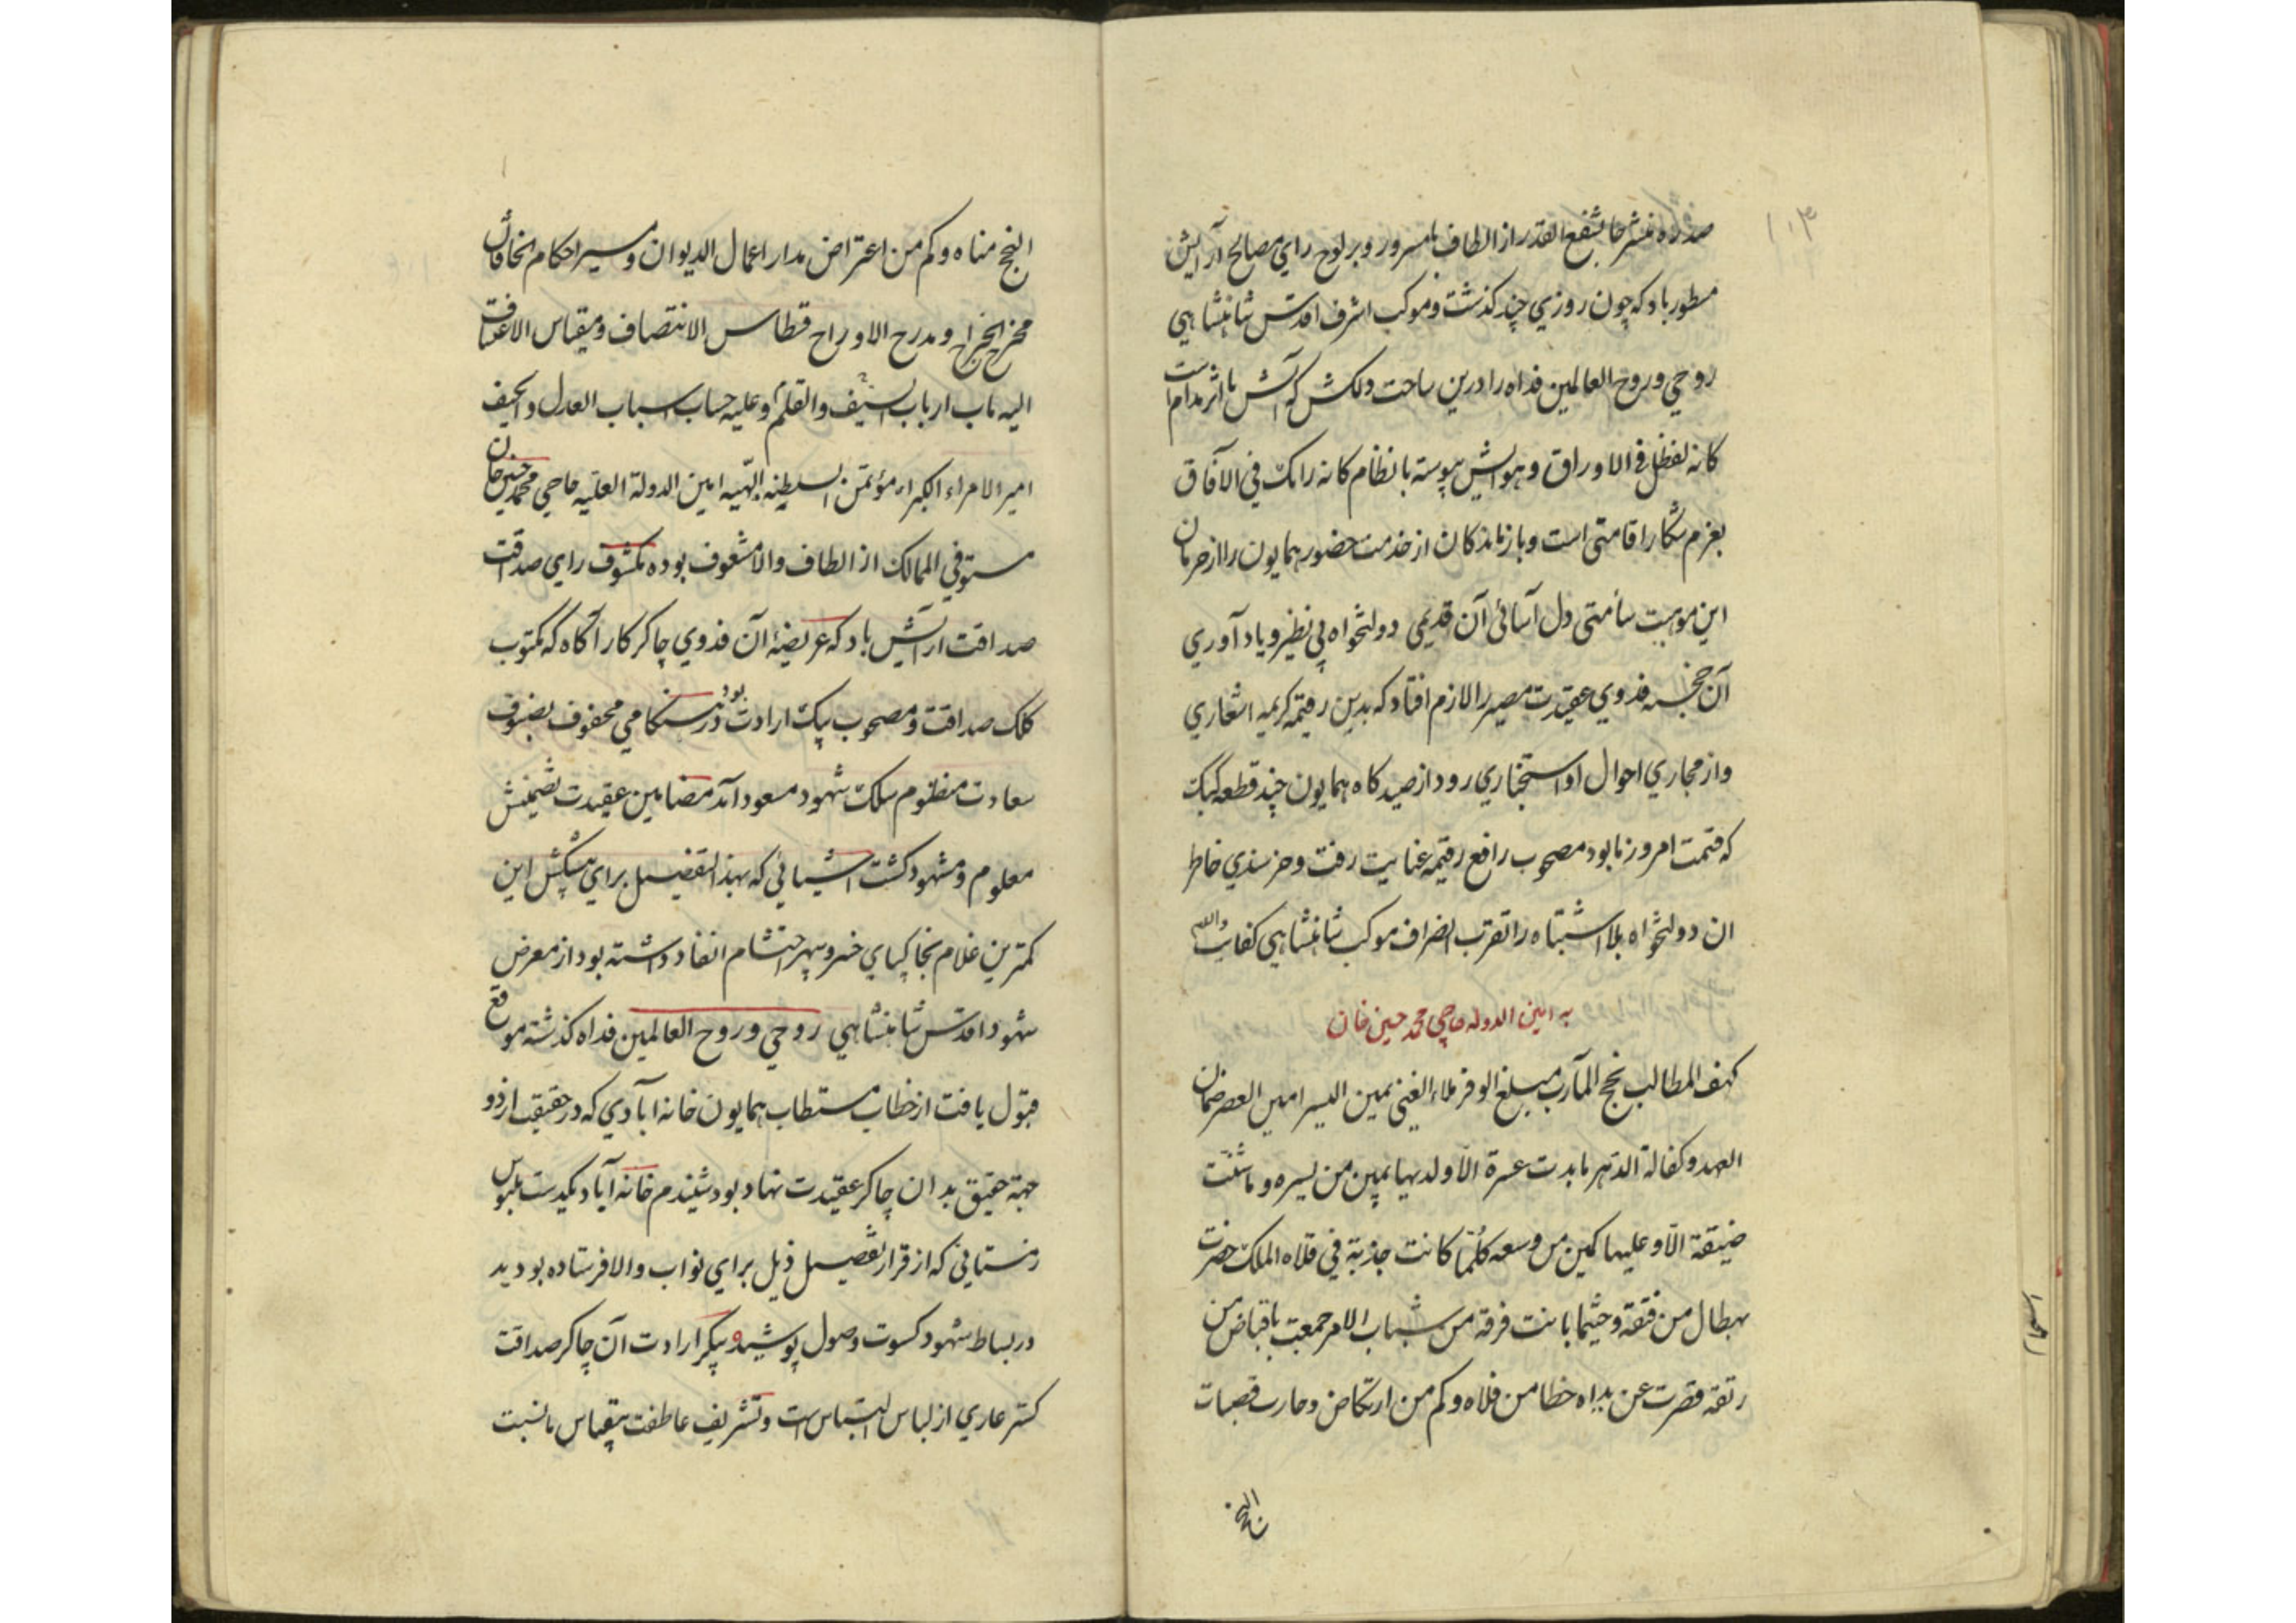 ۱۰۳
از الطاف ما مسرور و بر لوح رای مصالح آرایش
مسطور باد که چون روزی چند گذشت و موکب اشرف اقدس شاهنشاهی
روحی و روح العالمین فداه را درین ساحت دلکش که آتش با اثر مدام است
کانه لفظک فی الاوراق و هوایش پیوسته با نظام کانه رایک فی الآفاق
بعزم شکار اقامتی است و بازماندکان از خدمت حضور همایون را از حرمان
این موهبت سأمتی دل آسائی آن قدیمی دولتخواه بی نظیر و یاد آوری
آن خجسته فدوی عقیدت مصیر را لازم افتاد که بدین رقیمه کریمه اشعاری
و از مجاری احوال او استخباری رود از صیدکاه همایون چند قطعه کبک
که قسمت امروز ما بود مصحوب رافع رقیمه عنایت رفت و خرسندی خاطر
ان دولتخواه بلا اشتباه را تقرب انصراف موکب شاهنشاهی کفایت والسلام
به امین الدوله حاجی محمد حسین خان
کهف المطالب نجح المآرب مبلغ الوفر ملاء الغنی یمین الیسر امین العصر ضمان
العهد و کفالة الدهر ما بدت عسرة الا و لدیها یمین من یسره و ما شئت
ضیقة الا و علیها کمین من وسعه کلما کانت جذبة فی فلاه الملک حضرت
بهطال من فقة و حیثما بانت فرقه من شباب الامر جمعت باقباض من
رتقه قصرت عن یداه خطا من فلاه و کم من ارتکاض و حارب قصبات
النجح
النجح مناه و کم من اعتراض مدار اعمال الدیوان و مسیر احکام الخاقان
مخرج الخراج و مدرج الاوراج قسطاس الانتصاف و مقیاس الاعتساف
الیه مآب ارباب السیف و القلم و علیه حساب اسباب العدل و الحیف
امیر الامراء الکبراء مؤتمن السلطنه البهیه امین الدولة العلیه حاجی محمد حسین خان
مستوفی الممالک از الطاف والا مشعوف بوده مکشوف رای صداقت
صداقت آرایش باد که عریضه آن فدوی چاکر کار آگاه که مکتوب
کلک صداقت و مصحوب پیک ارادت بود در هنگامی محفوف بصنوف
سعادت منظوم سلک شهود مسعود آمد مضامین عقیدت تضمینش
معلوم و مشهود کشت اشیائی که بهذا التفصیل برای پیشکش این
کمترین غلام بخاکپای خسرو سپهر احتشام انفاد داشته بود از معرض
شهود اقدس شاهنشاهی روحی و روح العالمین فداه کذشته موقع
قبول یافت از خطاب مستطاب همایون خانه آبادی که در حقیقت از دو
جهة حقیق بدان چاکر عقیدت نهاد بود شنیدم خانه آباد یکدست ملبوس
زمستانی که از قرار تفصیل ذیل برای نواب والا فرستاده بودید
در بساط شهود کسوت وصول پوشید و پیکر ارادت آن چاکر صداقت
کستر عاری از لباس التباس است و تشریف عاطفت بیقیاس ما نسبت